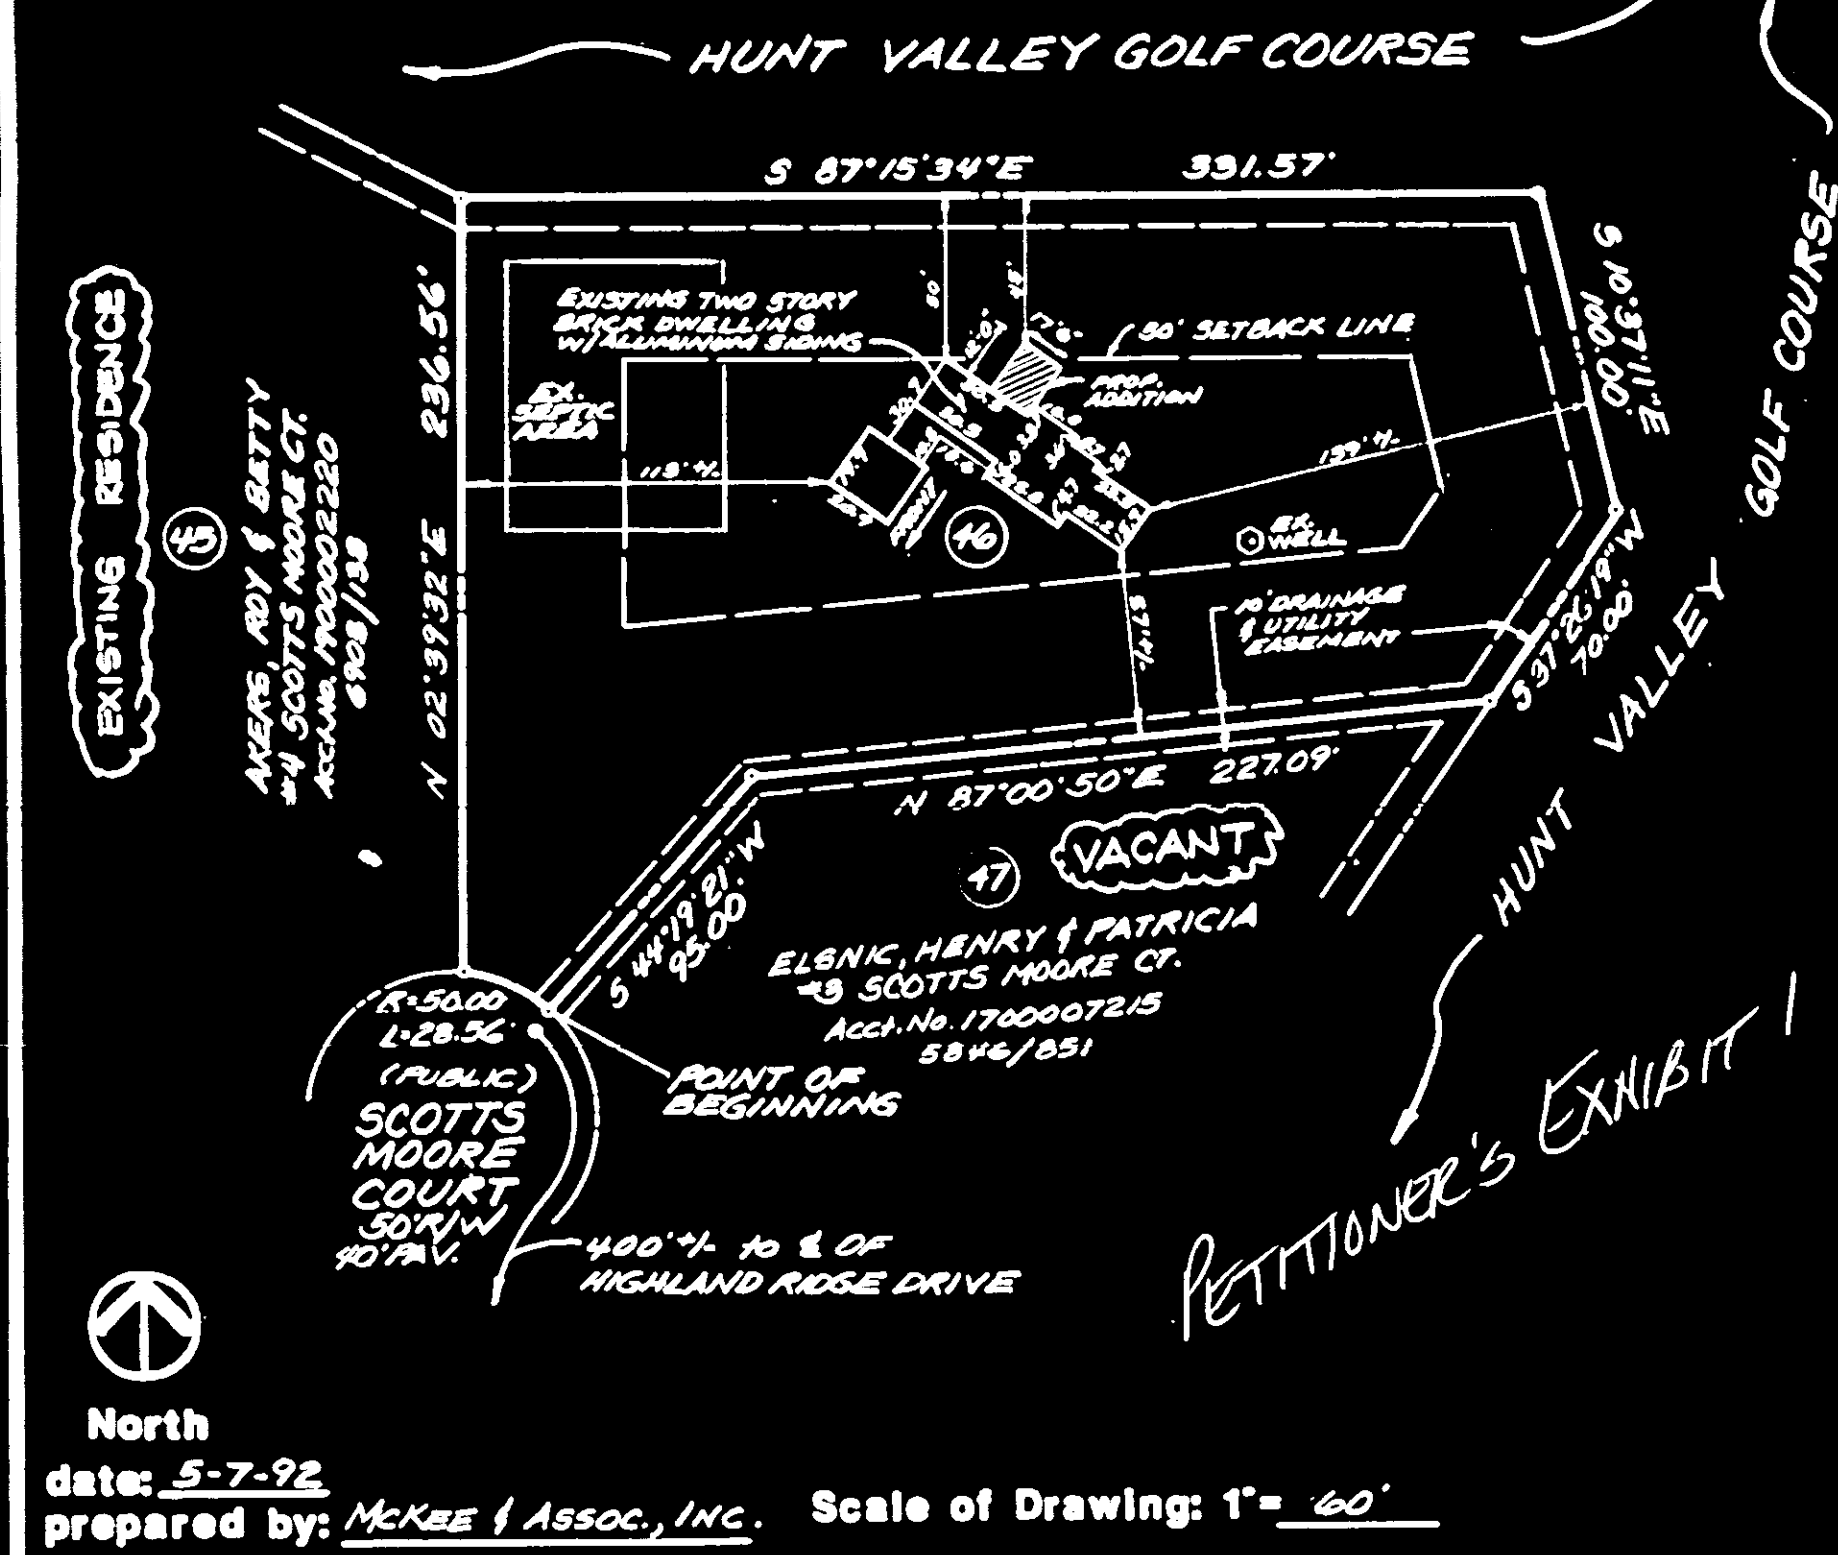 HUNT VALLEY GOLF COURSE
S 87°15'34"E 331.57'
S 10°37'11"E
100.00'
GOLF COURSE
VALLEY
HUNT
EXISTING RESIDENCE
45
AKERS, ROY & BETTY
#4 SCOTTS MOORE CT.
Acct. No. 1900002220
6908/138
N 02°39'32"E 236.56'
EXISTING TWO STORY
BRICK DWELLING
W/ALUMINUM SIDING
EX.
SEPTIC
AREA
50'
48'
17'6"
50' SETBACK LINE
PROP.
ADDITION
113' +/-
139' +/-
FRONT
46
EX.
WELL
57' +/-
10' DRAINAGE
& UTILITY
EASEMENT
S 37°26'19"W
70.00'
N 87°00'50"E 227.09'
VACANT
47
S 44°19'21"W
95.00'
ELSNIC, HENRY & PATRICIA
#3 SCOTTS MOORE CT.
Acct. No. 1700007215
5846/851
R=50.00
L=28.56'
(PUBLIC)
SCOTTS
MOORE
COURT
50' R/W
40' PAV.
POINT OF
BEGINNING
400' +/- to ℄ OF
HIGHLAND RIDGE DRIVE
PETITIONER'S EXHIBIT 1
North
date: 5-7-92
prepared by: McKEE & ASSOC., INC.
Scale of Drawing: 1"= 60'